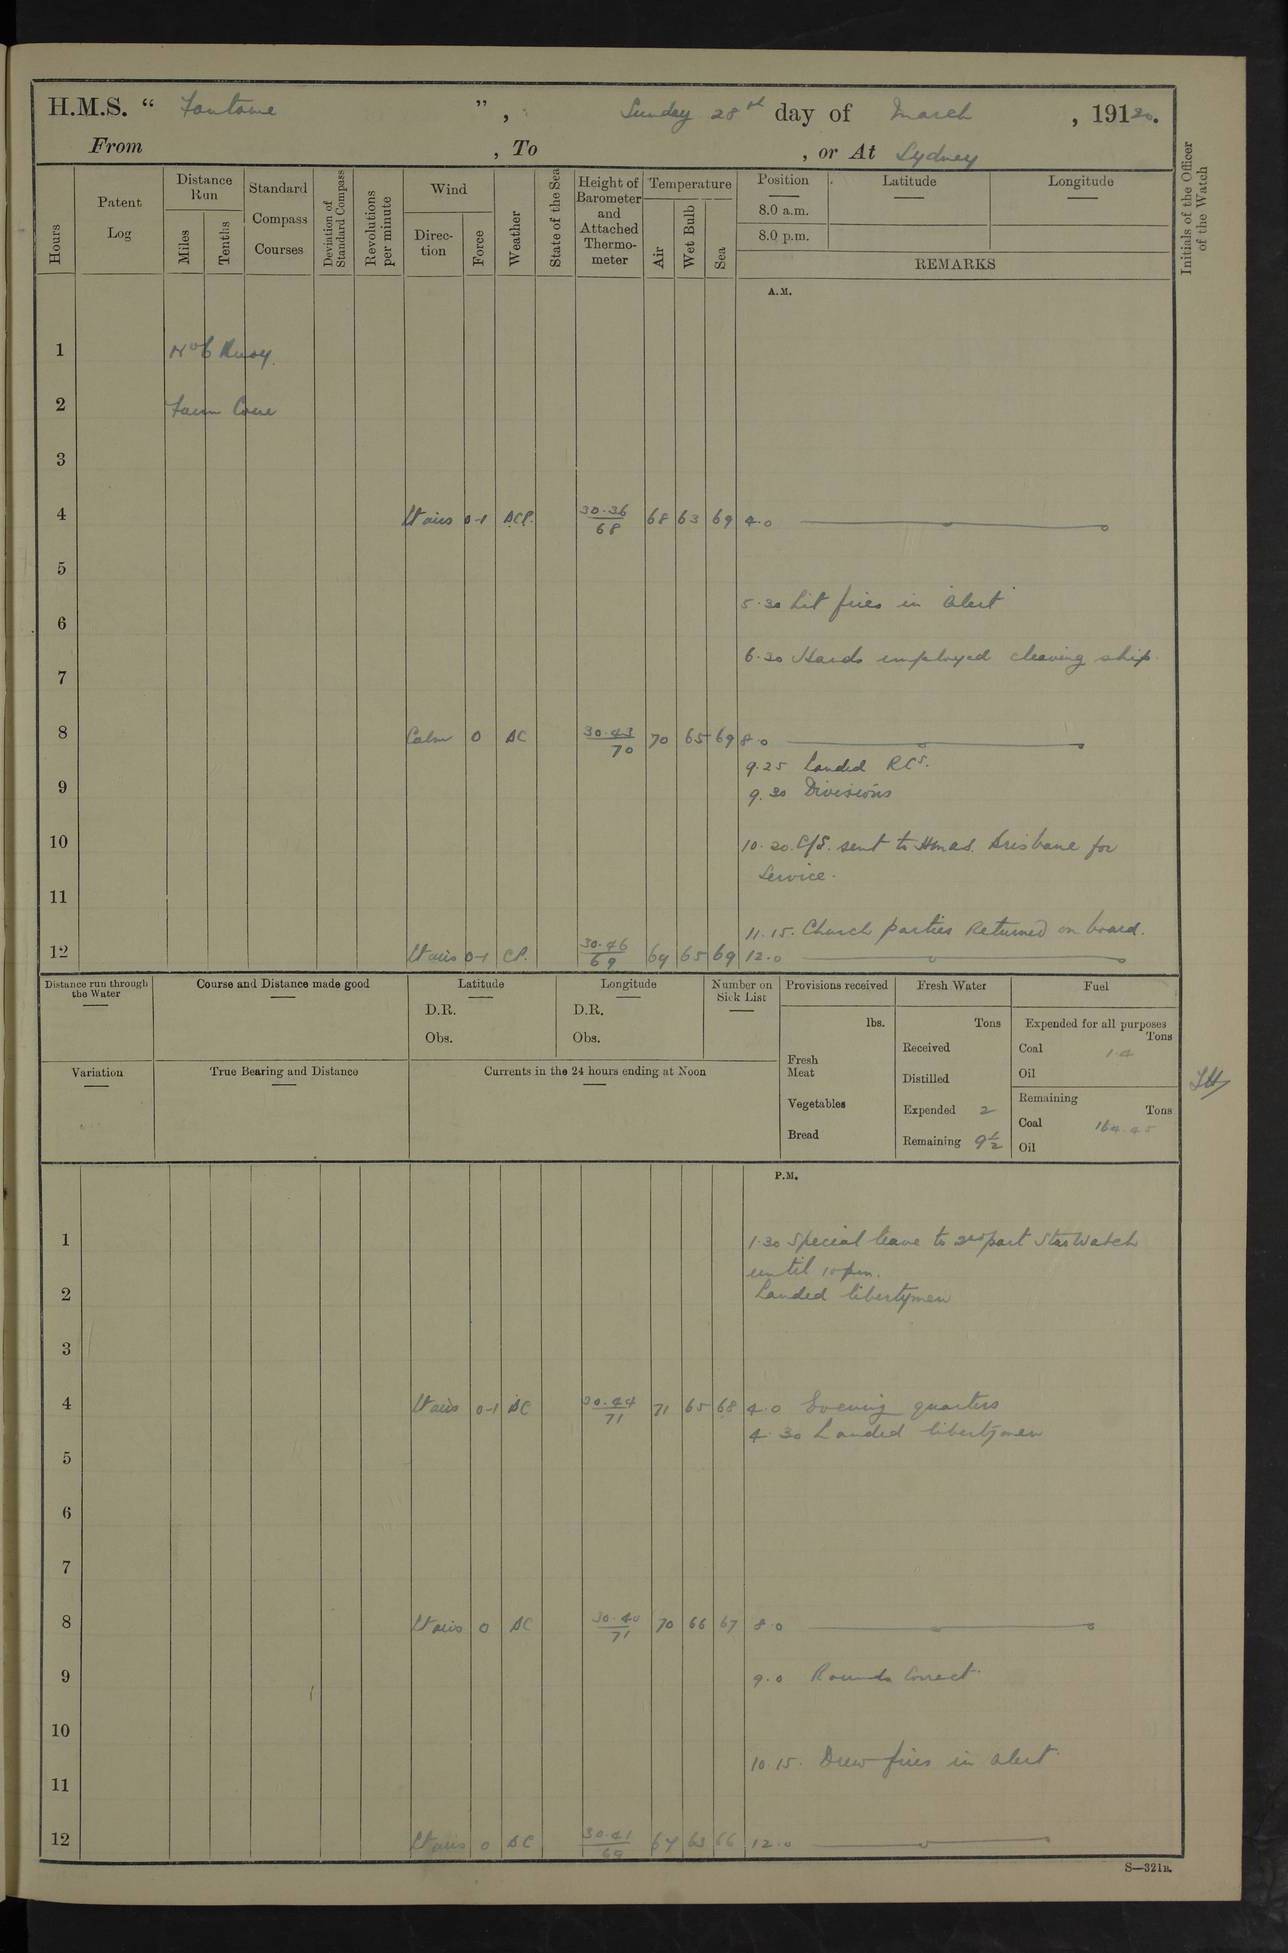 H.M.S. “ Fantome ”, Sunday 28th day of March, 19120.
From , To , or At Sydney
Hours
Patent Log
Distance Run
Miles
Tenths
Standard Compass Courses
Deviation of Standard Compass
Revolutions per minute
Wind
Direction
Force
Weather
State of the Sea
Height of Barometer and Attached Thermometer
Temperature
Air
Wet Bulb
Sea
Position
8.0 a.m.
8.0 p.m.
Latitude
Longitude
REMARKS
Initials of the Officer of the Watch
A.M.
1 No 6 Buoy.
2 Farm Cove
3
4 Lt airs 0-1 BCP. 30.36/68 68 63 69 4.0
5
5.30 Lit fires in Alert
6
6.30 Hands employed cleaning ship.
7
8 Calm 0 BC 30.43/70 70 65 69 8.0
9.25 Landed RCs.
9 9.30 Divisions
10 10.20. C/S. sent to HMAS. Brisbane for
Service.
11
11.15. Church parties Returned on board.
12 Lt airs 0-1 CP. 30.46/69 65 69 12.0
Distance run through the Water
Course and Distance made good
Latitude
D.R.
Obs.
Longitude
D.R.
Obs.
Number on Sick List
Provisions received
lbs.
Fresh Meat
Vegetables
Bread
Fresh Water
Tons
Received
Distilled
Expended 2
Remaining 9½
Fuel
Expended for all purposes
Tons
Coal 1.4
Oil
Remaining
Tons
Coal 164.45
Oil
Variation
True Bearing and Distance
Currents in the 24 hours ending at Noon
P.M.
1 1.30 Special leave to 2nd part Star Watch
until 10 pm.
2 Landed libertymen
3
4 Lt airs 0-1 BC 30.44/71 71 65 68 4.0 Evening quarters
4.30 Landed libertymen
5
6
7
8 Lt airs 0 BC 30.40/71 70 66 67 8.0
9 9.0 Rounds Correct.
10
10.15. Drew fires in Alert.
11
12 Lt airs 0 BC 30.41/69 63 66 12.0
S—321B.